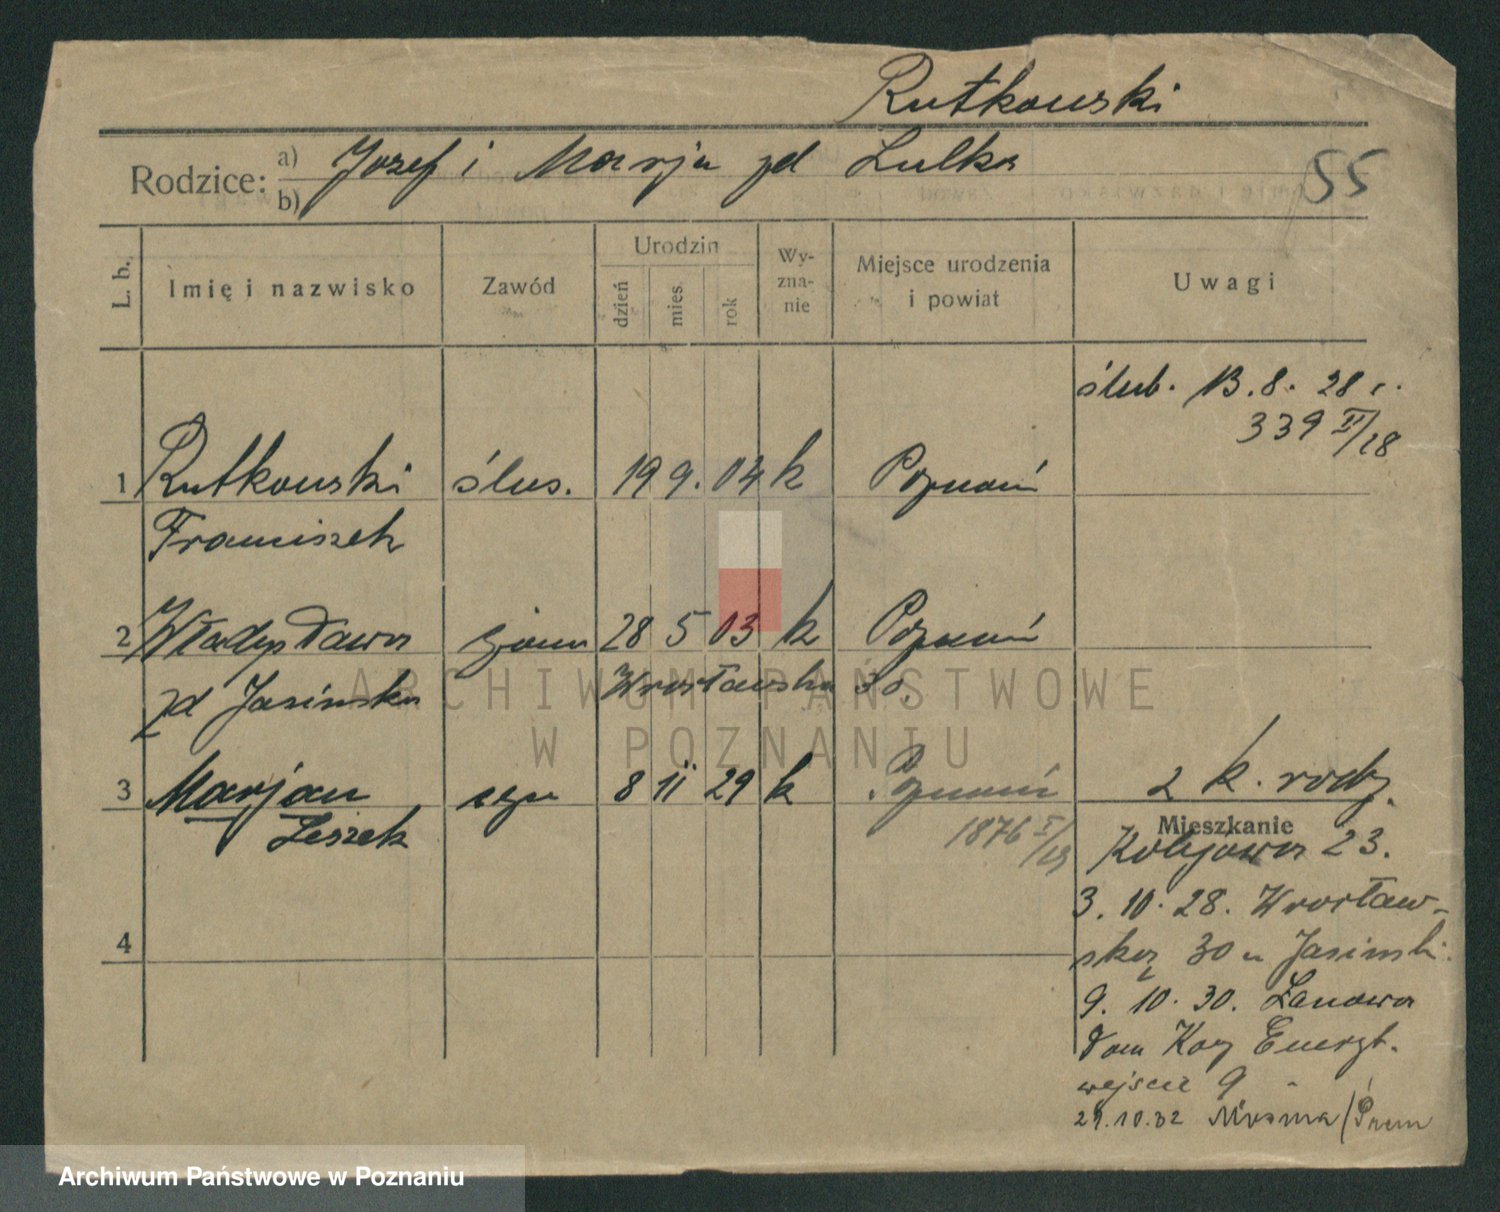 Rutkowski
Rodzice: a) Józef i Marja zd Lulka
b)
55
L. b. Imię i nazwisko Zawód Urodzin Wyznanie Miejsce urodzenia i powiat Uwagi
dzień mies. rok
ślub. 13.8. 28 r.
339 II/28
1 Rutkowski ślus. 19 9. 04 k Poznań
Franciszek
2 Władysława żona 28 5 03 k Poznań
zd Jasińska Wrocławska 30.
3 Marjan syn 8 11 29 k Poznań 2 k. rodz.
Leszek 1876 I/29
Mieszkanie
Kolejowa 23.
3. 10. 28. Wrocław-
ską 30 u Jasińsk.
9. 10. 30. Łanowa
dom
wejście 9
4
29.10.32
ARCHIWUM PAŃSTWOWE
W POZNANIU
Archiwum Państwowe w Poznaniu